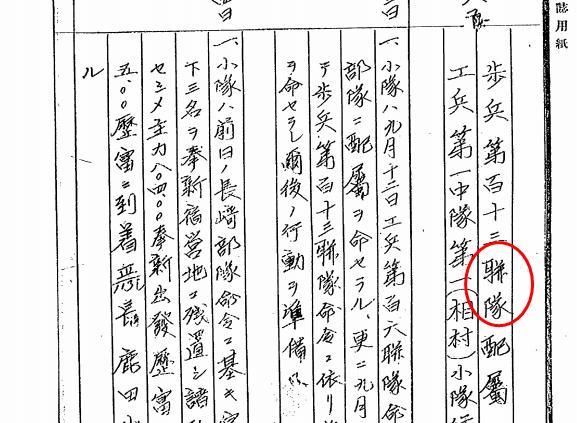 誌用紙
歩兵第百十三聯隊配屬
工兵第一中隊第一(相村)小隊
一、小隊ハ九月十三日工兵第百六聯隊命
部隊ニ配屬ヲ命セラル、更ニ九月
テ歩兵第百十三聯隊命令ニ依リ
ヲ命セラレ爾後ノ行動ヲ準備
一、小隊ハ前日ノ長﨑部隊命令ニ基キ
下三名ヲ奉新宿営地ニ残置シ諸
セシメ主力八〇四〇〇奉新出發歴富
五〇〇歴富ニ到着 長鹿田
ル